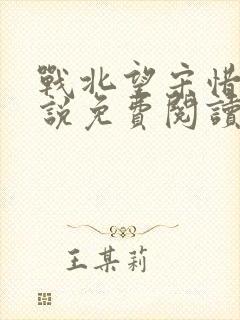 戰北望宋惜
說免費閱讀
王某莉